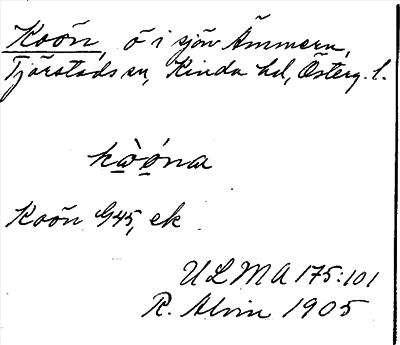 Koön, ö i sjön Ämmern,
Tjärstads sn, Kinda hd, Österg. l.
kò̱ó̱na
Koön G45, ek
ULMA 175:101
R. Alvin 1905